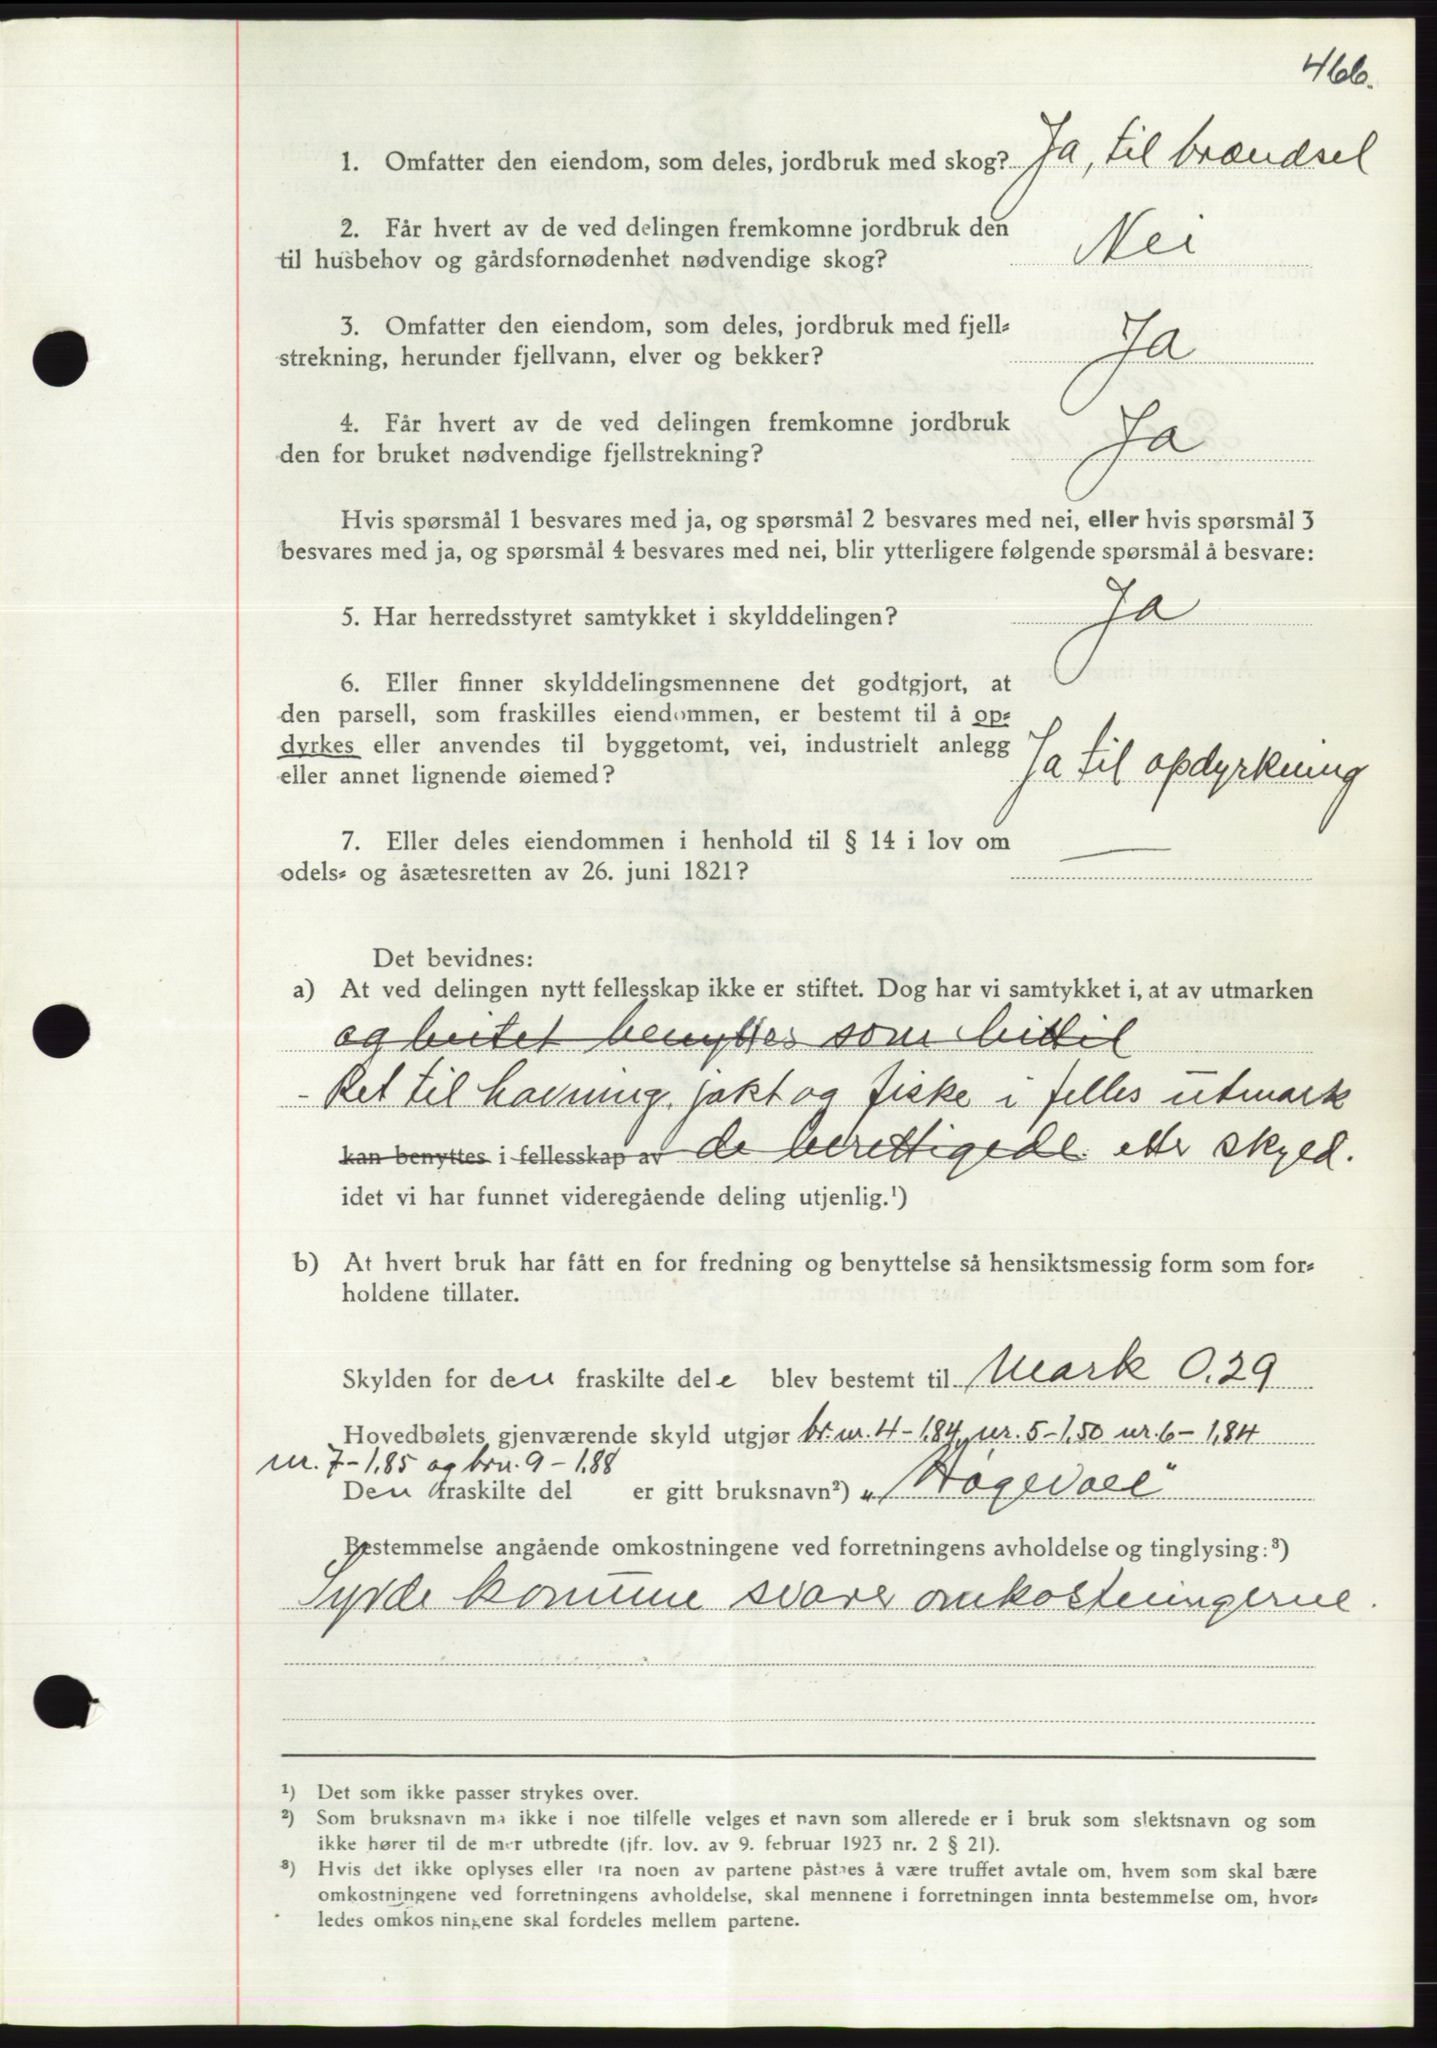 466.
1. Omfatter den eiendom, som deles, jordbruk med skog? Ja, til brændsel
2. Får hvert av de ved delingen fremkomne jordbruk den
til husbehov og gårdsfornødenhet nødvendige skog? Nei
3. Omfatter den eiendom, som deles, jordbruk med fjell=
strekning, herunder fjellvann, elver og bekker? Ja
4. Får hvert av de ved delingen fremkomne jordbruk
den for bruket nødvendige fjellstrekning? Ja
Hvis spørsmål 1 besvares med ja, og spørsmål 2 besvares med nei, eller hvis spørsmål 3
besvares med ja, og spørsmål 4 besvares med nei, blir ytterligere følgende spørsmål å besvare:
5. Har herredsstyret samtykket i skylddelingen? Ja
6. Eller finner skylddelingsmennene det godtgjort, at
den parsell, som fraskilles eiendommen, er bestemt til å op=
dyrkes eller anvendes til byggetomt, vei, industrielt anlegg
eller annet lignende øiemed? Ja til opdyrkning
7. Eller deles eiendommen i henhold til § 14 i lov om
odels= og åsætesretten av 26. juni 1821? —
Det bevidnes:
a) At ved delingen nytt fellesskap ikke er stiftet. Dog har vi samtykket i, at av utmarken
og beitet benyttes som hittil
- Ret til havning, jakt og fiske i felles utmark
kan benyttes i fellesskap av de berettigede etter skyld.
idet vi har funnet videregående deling utjenlig.¹)
b) At hvert bruk har fått en for fredning og benyttelse så hensiktsmessig form som for=
holdene tillater.
Skylden for den fraskilte dele blev bestemt til Mark 0,29
Hovedbølets gjenværende skyld utgjør br.nr. 4 - 1,84, nr. 5 - 1,50 nr. 6 - 1,84
nr. 7 - 1,85 og brn. 9 - 1,88
Den fraskilte del er gitt bruksnavn²) „Høgevoll"
Bestemmelse angående omkostningene ved forretningens avholdelse og tinglysing:³)
Syvde komune svarer omkostningerne.
¹) Det som ikke passer strykes over.
²) Som bruksnavn ma ikke i noe tilfelle velges et navn som allerede er i bruk som slektsnavn og som
ikke hører til de mer utbredte (jfr. lov. av 9. februar 1923 nr. 2 § 21).
³) Hvis det ikke oplyses eller fra noen av partene påstaes å være truffet avtale om, hvem som skal bære
omkostningene ved forretningens avholdelse, skal mennene i forretningen innta bestemmelse om, hvor=
ledes omkos ningene skal fordeles mellem partene.